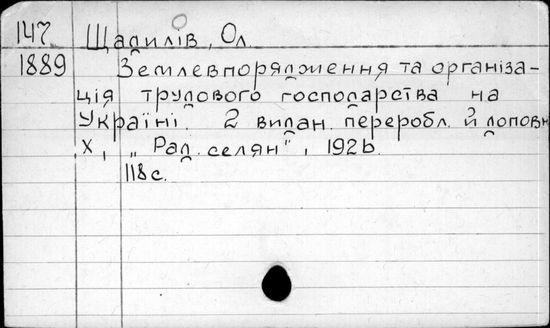 147 Щадилів, Ол.
1889 Землевпорядження та організа-
ція трудового господарства на
Україні. 2 видан. переробл. й доповн
Х, „Рад. селян", 1926.
118 с.